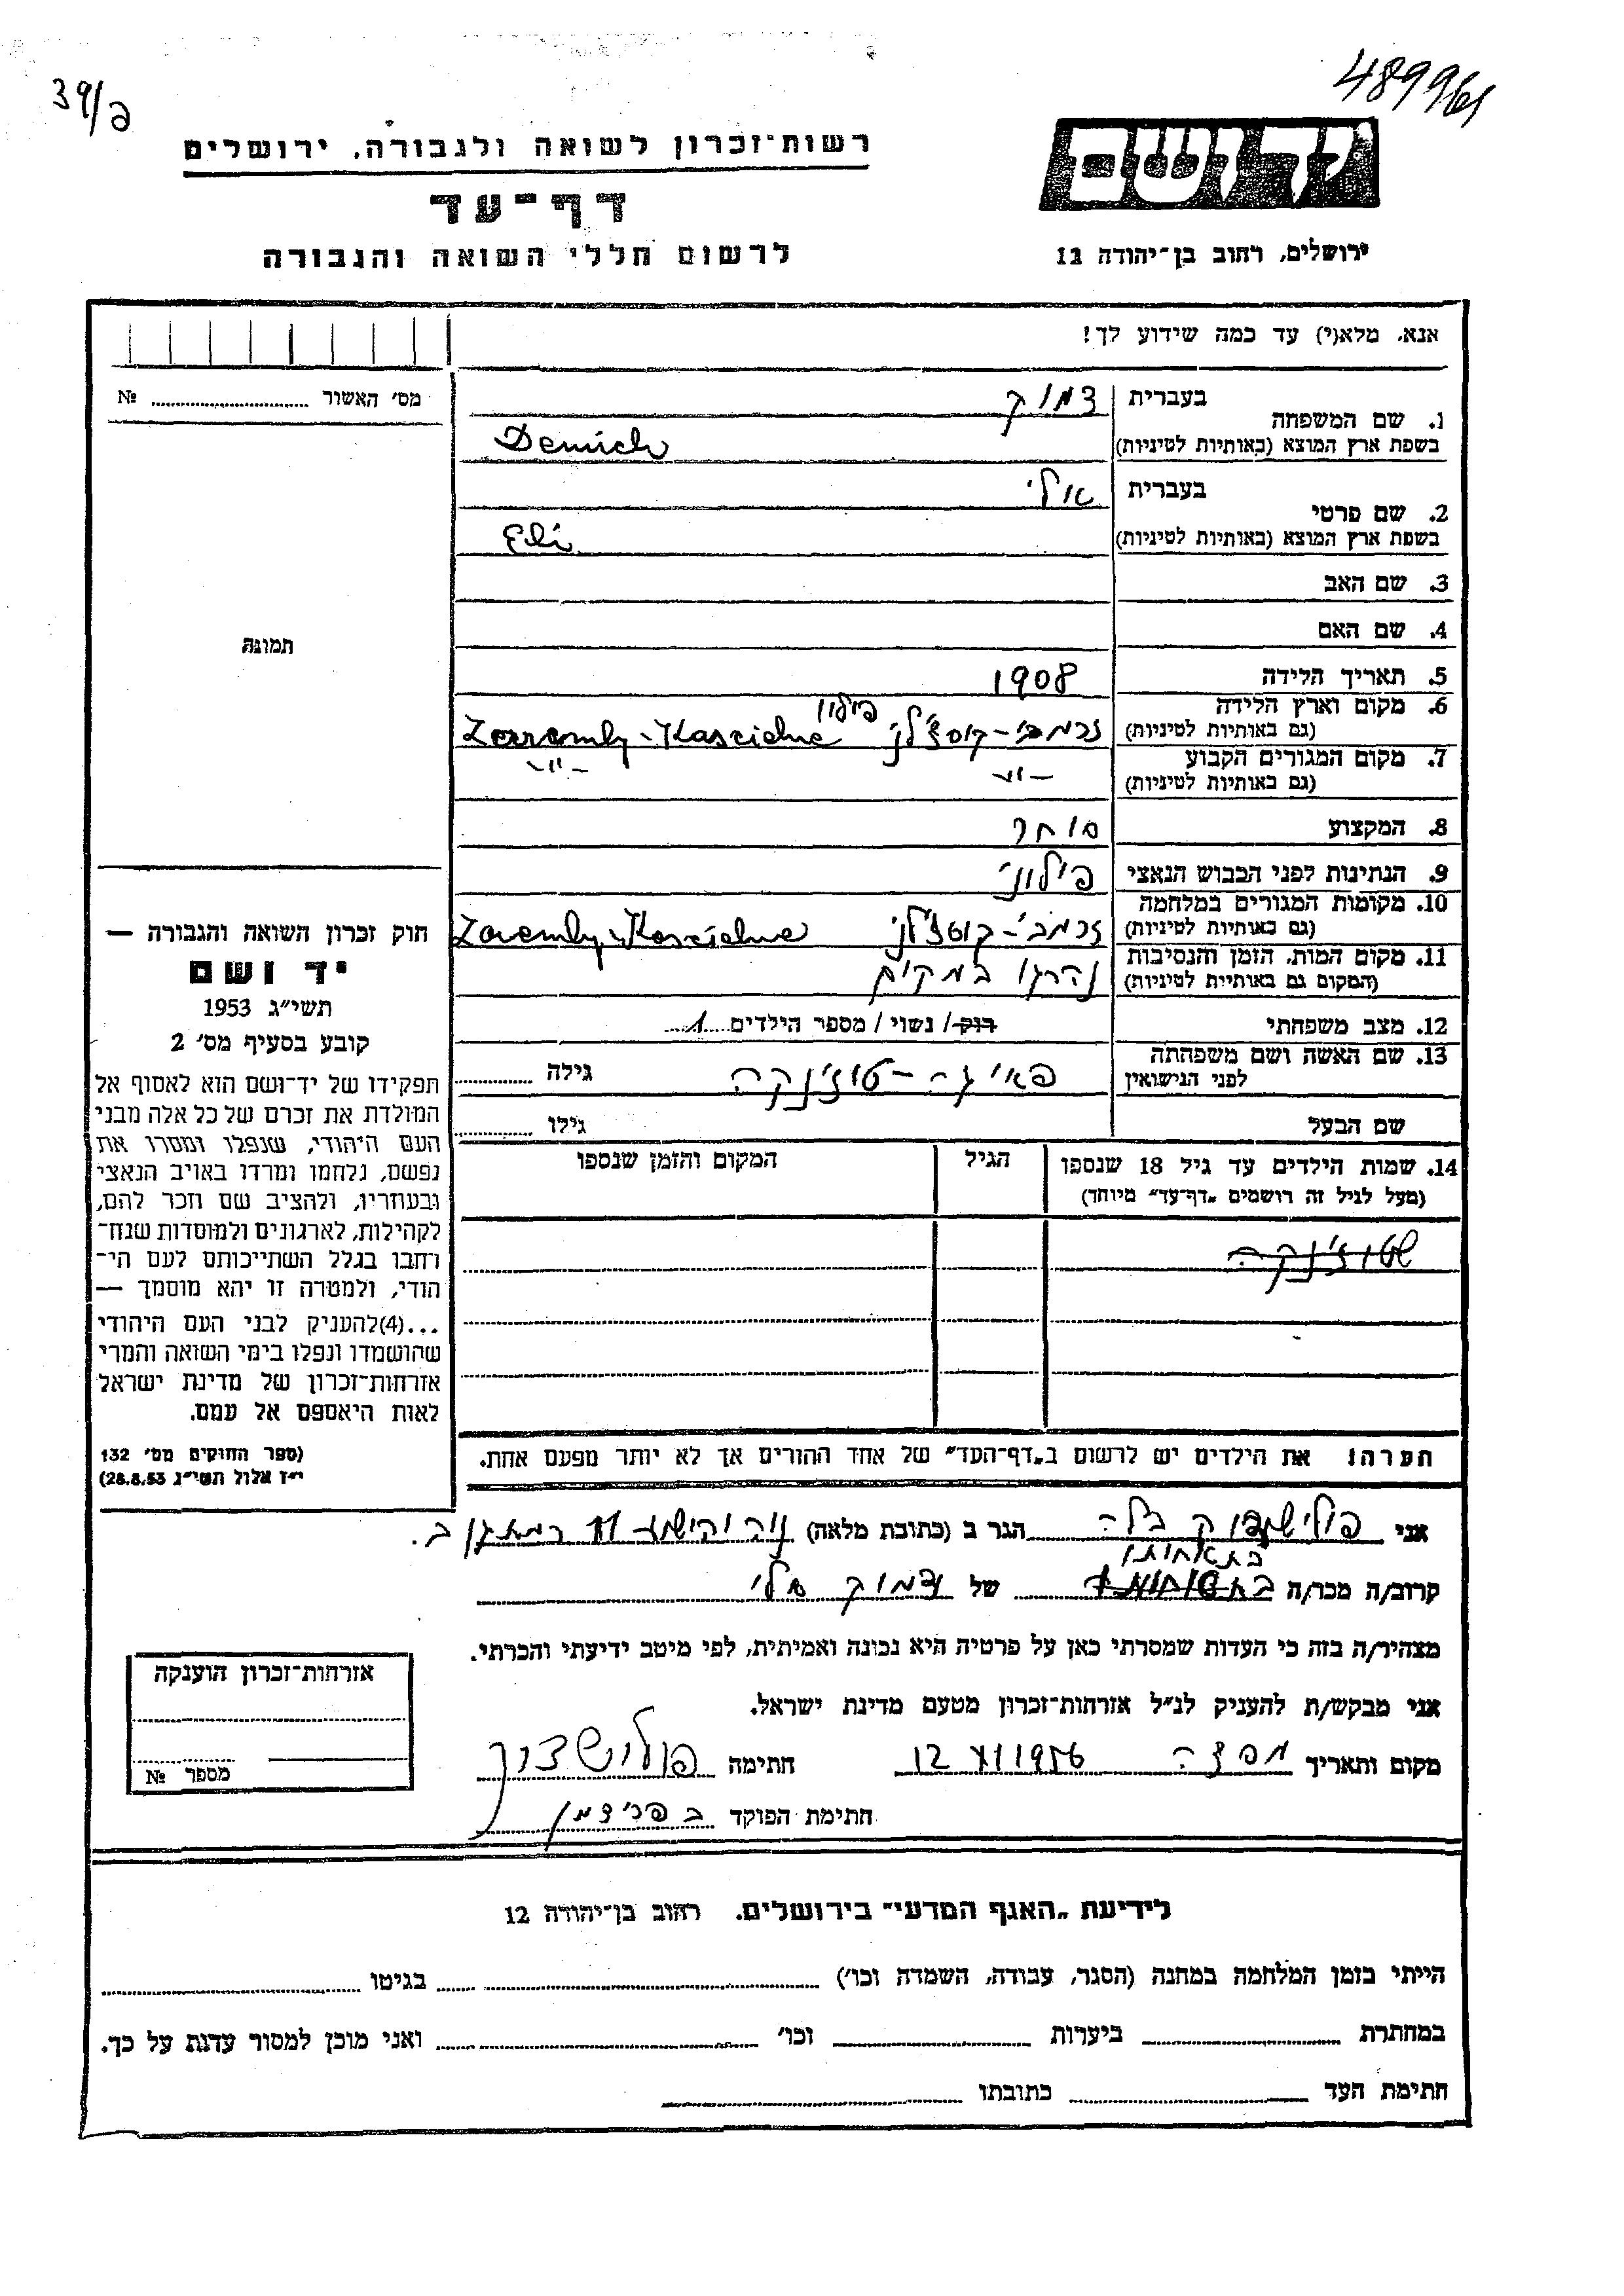 פ/39
489961
רשות־זכרון לשואה ולגבורה, ירושלים
דף־עד
לרשום חללי השואה והגבורה
יד ושם
ירושלים, רחוב בן־יהודה 12
אנא, מלא(י) עד כמה שידוע לך!
מס׳ האשור № 
1. שם המשפחה
בעברית
בשפת ארץ המוצא (באותיות לטיניות)
Demich
2. שם פרטי
בעברית אלי
בשפת ארץ המוצא (באותיות לטיניות)
Eli
3. שם האב
4. שם האם
תמונה
5. תאריך הלידה 1908
6. מקום וארץ הלידה
(גם באותיות לטיניות)
פולין
7. מקום המגורים הקבוע
(גם באותיות לטיניות)
-"-
-"-
8. המקצוע סוחר
9. הנתינות לפני הכבוש הנאצי פולני
10. מקומות המגורים במלחמה
(גם באותיות לטיניות)
Zaremby-Koscielne
11. מקום המות, הזמן והנסיבות
(המקום גם באותיות לטיניות)
נהרגו במקום
12. מצב משפחתי רוק/ נשוי / מספר הילדים 1
13. שם האשה ושם משפחתה
לפני הנישואין
גילה
שם הבעל גילו
14. שמות הילדים עד גיל 18 שנספו
(מעל לגיל זה רושמים „דף־עד״ מיוחד)
הגיל
המקום והזמן שנספו
חוק זכרון השואה והגבורה —
יד ושם
תשי״ג 1953
קובע בסעיף מס׳ 2
תפקידו של יד־ושם הוא לאסוף אל
המולדת את זכרם של כל אלה מבני
העם היהודי, שנפלו ומסרו את
נפשם, נלחמו ומרדו באויב הנאצי
ובעוזריו, ולהציב שם וזכר להם,
לקהילות, לארגונים ולמוסדות שנח־
רבו בגלל השתייכותם לעם הי־
הודי, ולמטרה זו יהא מוסמך —
...(4)להעניק לבני העם היהודי
שהושמדו ונפלו בימי השואה והמרי
אזרחות־זכרון של מדינת ישראל
לאות היאספם אל עמם.
(ספר החוקים מס׳ 132
י״ז אלול תשי״ג 28.8.53)
הערה! את הילדים יש לרשום ב„דף־העד״ של אחד ההורים אך לא יותר מפעם אחת.
אני בלה הגר ב (כתובת מלאה) רמת גן ב.
קרוב/ה מכר/ה של
מצהיר/ה בזה כי העדות שמסרתי כאן על פרטיה היא נכונה ואמיתית, לפי מיטב ידיעתי והכרתי.
אני מבקש/ת להעניק לנ״ל אזרחות־זכרון מטעם מדינת ישראל.
מקום ותאריך 12 XI 1956 חתימה
חתימת הפוקד
אזרחות־זכרון הוענקה
מספר №
לידיעת „האגף המדעי״ בירושלים. רחוב בן־יהודה 12
הייתי בזמן המלחמה במחנה (הסגר, עבודה, השמדה וכו׳) בגיטו
במחתרת ביערות וכו׳ ואני מוכן למסור עדות על כך.
חתימת העד כתובתו